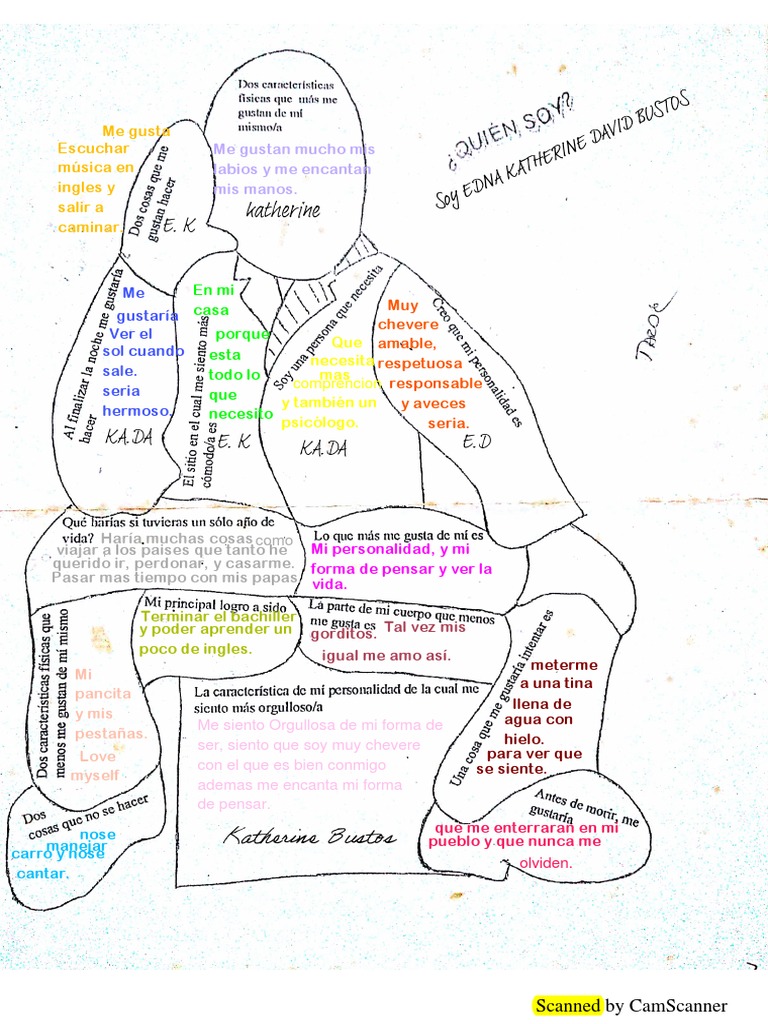 ¿QUIÉN SOY?
Soy EDNA KATHERINE DAVID BUSTOS
Dos características
físicas que más me
gustan de mí
mismo/a
Me gustan mucho mis
labios y me encantan
mis manos.
katherine
Dos cosas que me
gustan hacer
Me gusta
Escuchar
música en
ingles y
salir a
caminar.
E. K
Al finalizar la noche me gustaría
hacer
Me
gustaría
Ver el
sol cuando
sale.
seria
hermoso.
KA.DA
El sitio en el cual me siento más
cómodo/a es
En mi
casa
porque
esta
todo lo
que
necesito
E. K
Soy una persona que necesita
Que
necesita
mas
comprencion
y también un
psicólogo.
KA.DA
Creo que mi personalidad es
Muy
chevere
amable,
respetuosa
responsable
y aveces
seria.
E.D
Qué harías si tuvieras un sólo año de
vida? Haría muchas cosas como
viajar a los paises que tanto he
querido ir, perdonar, y casarme.
Pasar mas tiempo con mis papas
Lo que más me gusta de mí es
Mi personalidad, y mi
forma de pensar y ver la
vida.
Mi principal logro a sido
Terminar el bachiller
y poder aprender un
poco de ingles.
La parte de mi cuerpo que menos
me gusta es
Tal vez mis
gorditos.
igual me amo así.
Dos características físicas que
menos me gustan de mí mismo
Mi
pancita
y mis
pestañas.
Love
myself
La característica de mi personalidad de la cual me
siento más orgulloso/a
Me siento Orgullosa de mi forma de
ser, siento que soy muy chevere
con el que es bien conmigo
ademas me encanta mi forma
de pensar.
Katherine Bustos
Una cosa que me gustaría intentar es
meterme
a una tina
llena de
agua con
hielo.
para ver que
se siente.
Dos
cosas que no se hacer
nose
manejar
carro y nose
cantar.
Antes de morir, me
gustaría
que me enterraran en mi
pueblo y que nunca me
olviden.
Scanned by CamScanner